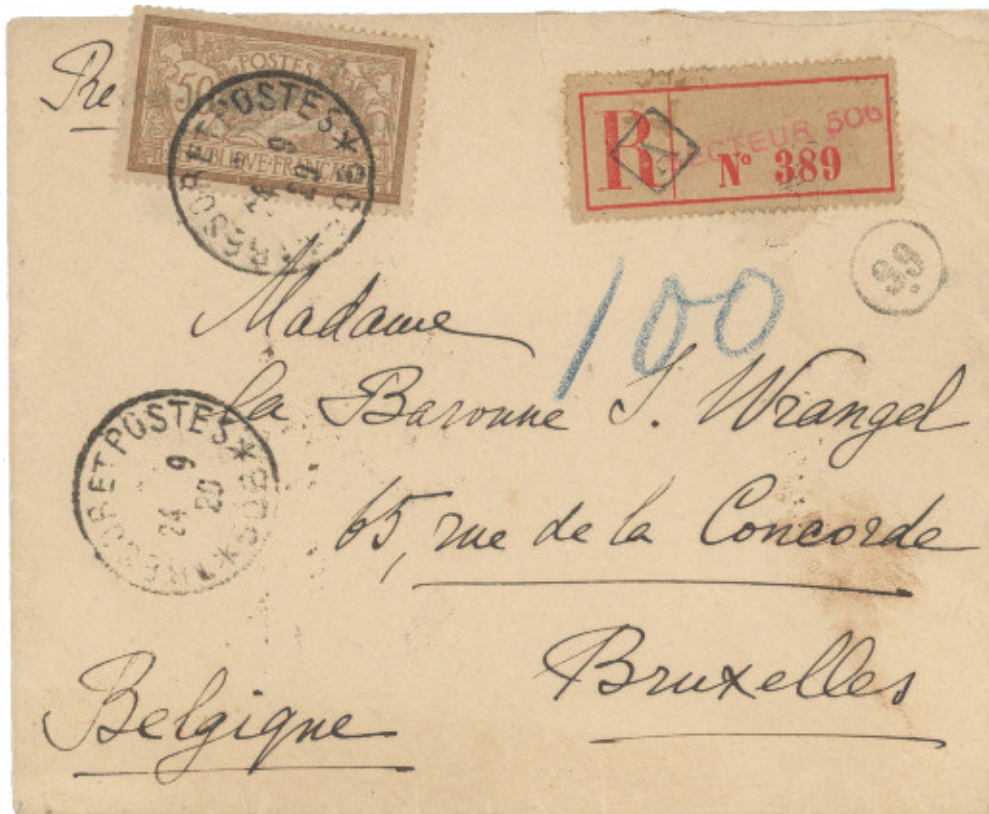 POSTES
50
REPUBLIQUE FRANÇAISE
TRESOR ET POSTES *
9
20
R
A
SECTEUR 506
N° 389
39
100
Madame
la Baronne S. Wrangel
65, rue de la Concorde
Bruxelles
Belgique
TRESOR ET POSTES * 506 *
24 9
20